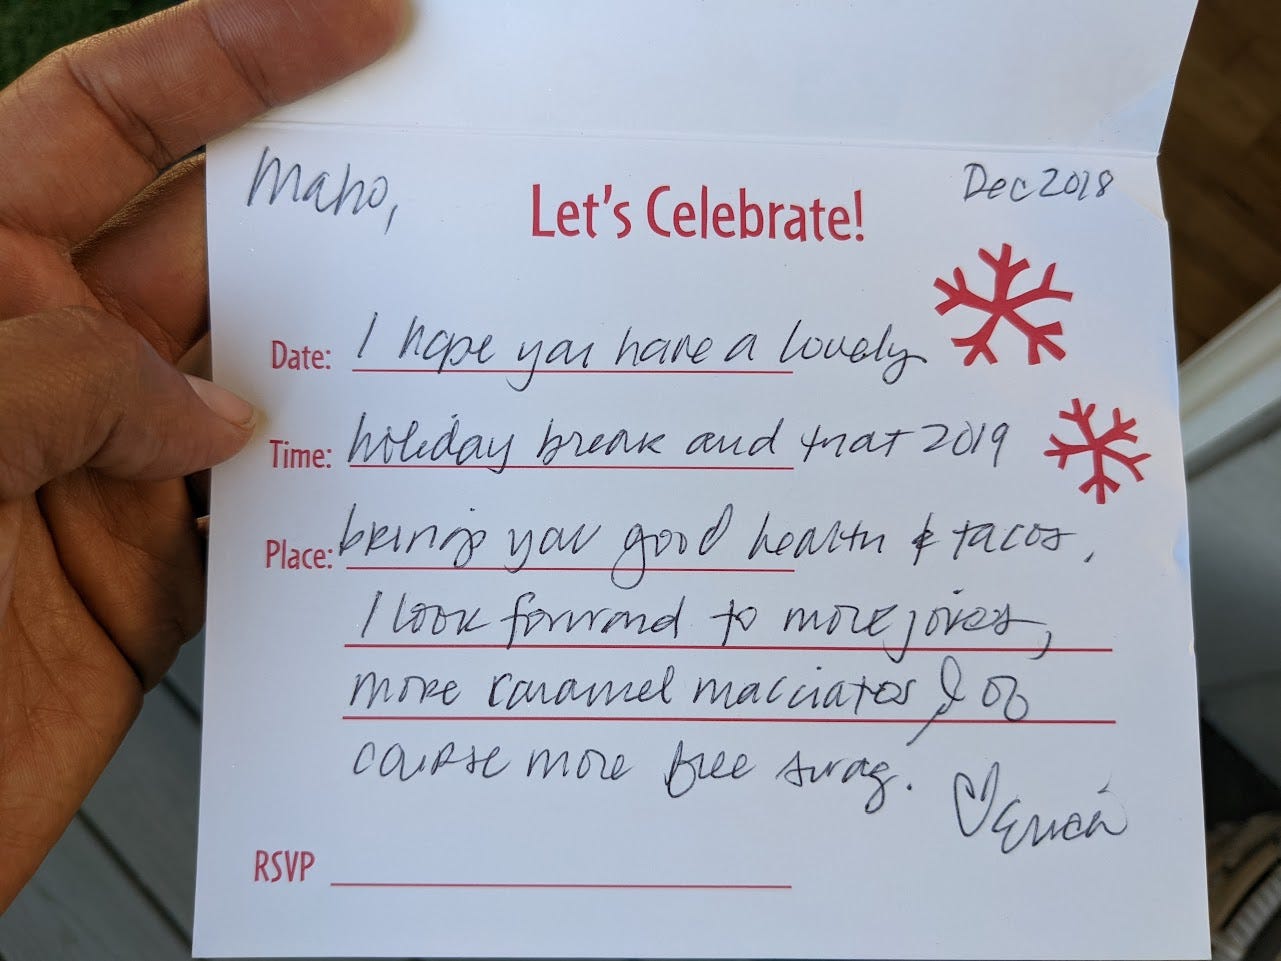 Maho,
Dec 2018
Let's Celebrate!
Date: I hope you have a lovely
Time: holiday break and that 2019
Place: brings you good health & tacos.
I look forward to more jokes,
more caramel macciatos, & of
course more free swag.
♡ Erica
RSVP